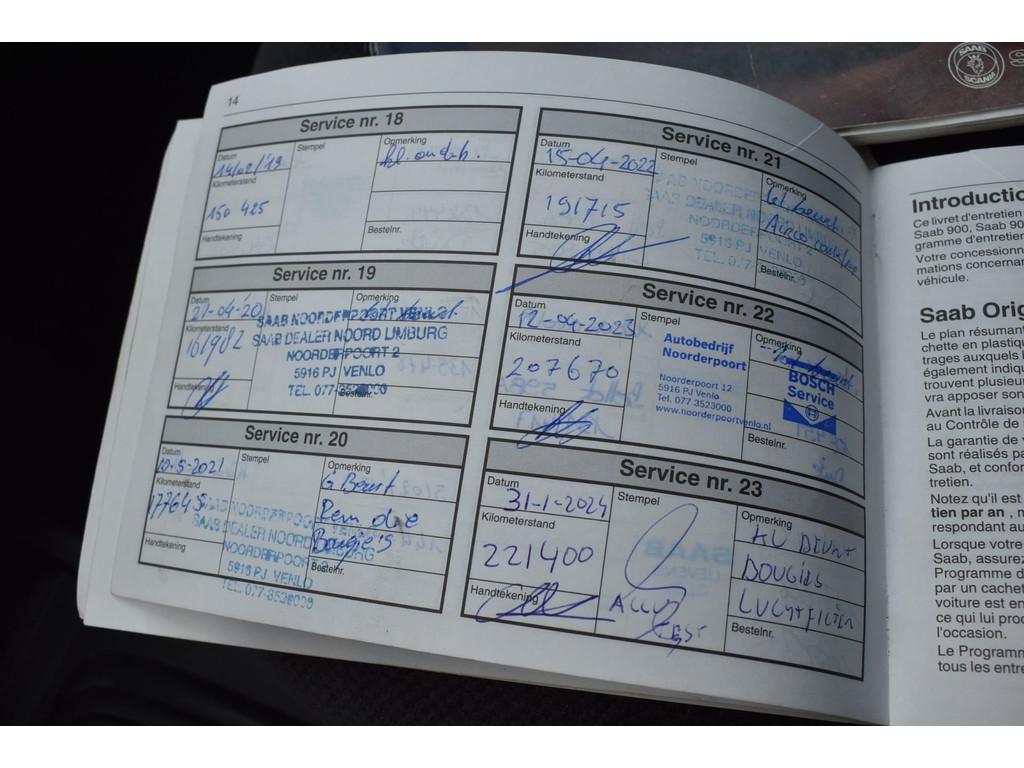 SAAB
SCANIA
14
Service nr. 18
Datum
14/02/'19
Stempel
Opmerking
kl. onderh.
Kilometerstand
150 425
Handtekening
Bestelnr.
Service nr. 19
Datum
21-04-'20
Stempel
Opmerking
Kilometerstand
161982
SAAB NOORDERPOORT VENLO
SAAB DEALER NOORD LIMBURG
NOORDERPOORT 2
5916 PJ VENLO
TEL. 077-
Handtekening
Bestelnr.
Service nr. 20
Datum
10-5-2021
Stempel
Opmerking
G Beurt
Kilometerstand
177645
Rem olie
Bougie's
SAAB NOORDERPOORT
SAAB DEALER NOORD LIMBURG
NOORDERPOORT 2
5916 PJ VENLO
TEL. 077-3523000
Handtekening
Bestelnr.
Service nr. 21
Datum
15-04-2022
Stempel
Opmerking
Kilometerstand
191715
Kl. beurt
Airco
SAAB NOORDERPOORT
SAAB DEALER NOORD LIMBURG
NOORDERPOORT 2
5916 PJ VENLO
TEL. 077-
Handtekening
Bestelnr.
Service nr. 22
Datum
12-04-2023
Stempel
Opmerking
Kilometerstand
207670
Autobedrijf
Noorderpoort
Noorderpoort 12
5916 PJ Venlo
Tel. 077 3523000
www.noorderpoortvenlo.nl
BOSCH
Service
Handtekening
Bestelnr.
Service nr. 23
Datum
31-1-2024
Stempel
Opmerking
KU BEURT
Kilometerstand
221400
BOUGIES
LUCHTFILTER
Handtekening
Bestelnr.
Introductio
Ce livret d'entretien
Saab 900, Saab 90
gramme d'entretien
Votre concessionn
mations concernan
véhicule.
Saab Orig
Le plan résumant
chette en plastique
trages auxquels l
également indiqu
trouvent plusieur
vra apposer son
Avant la livraison
au Contrôle de
La garantie de v
sont réalisés pa
Saab, et confor
tretien.
Notez qu'il est
tien par an , n
respondant au
Lorsque votre
Saab, assurez
Programme d
par un cachet
voiture est en
ce qui lui proc
l'occasion.
Le Programm
tous les entre